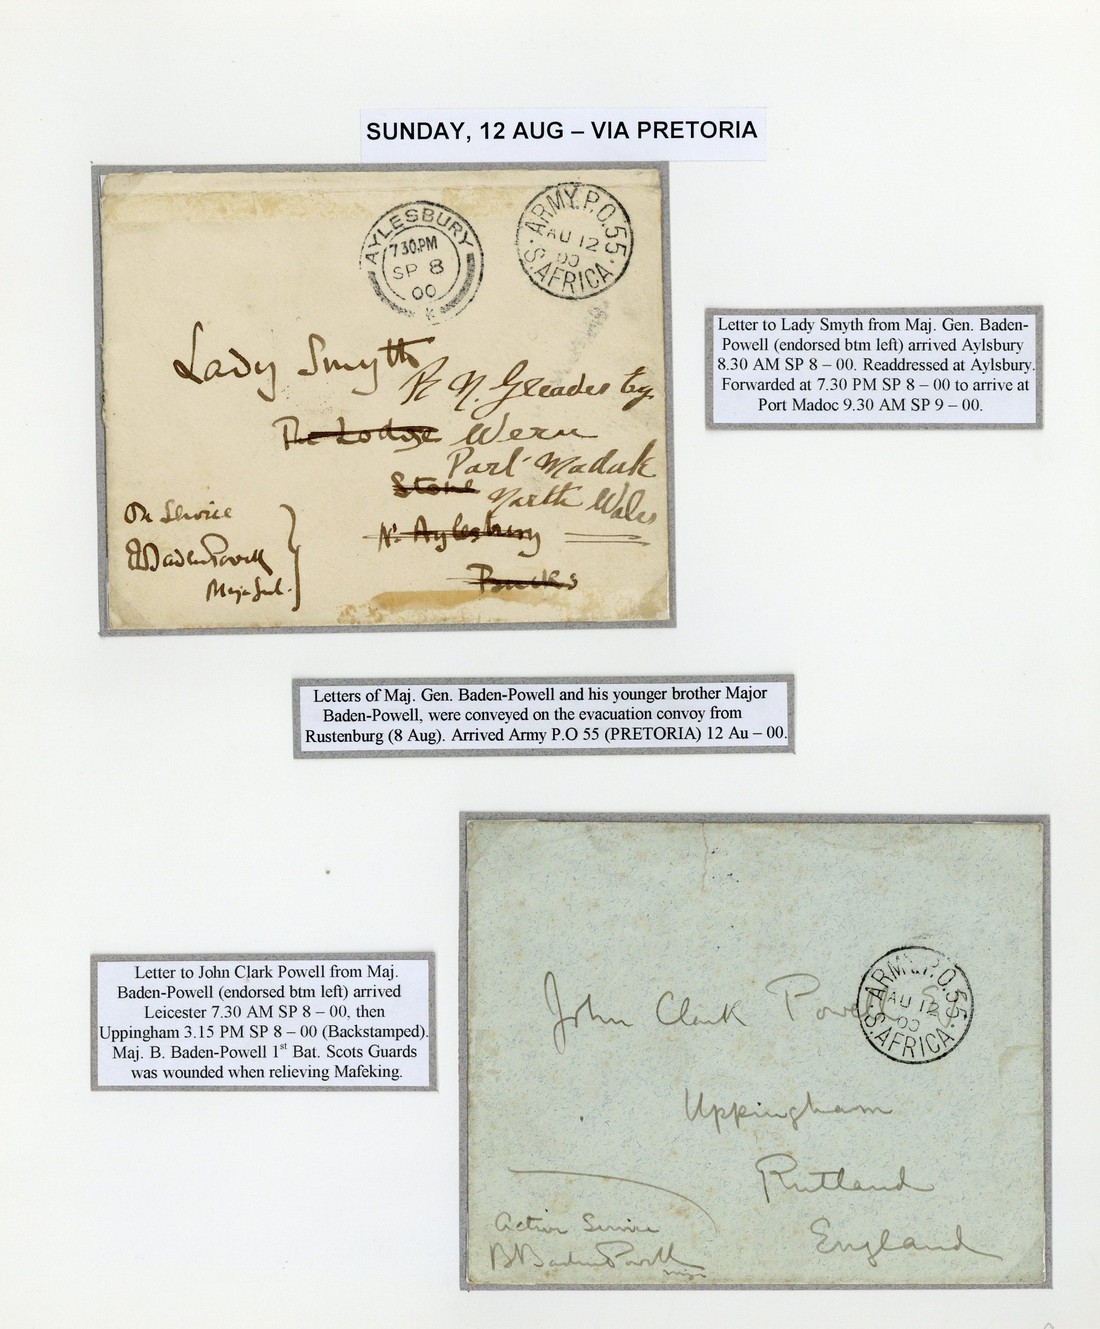 SUNDAY, 12 AUG – VIA PRETORIA
AYLESBURY
7 30.PM
SP 8
00
K
ARMY.P.O.55
AU 12
00
S.AFRICA
Letter to Lady Smyth from Maj. Gen. Baden-
Powell (endorsed btm left) arrived Aylsbury
8.30 AM SP 8 – 00. Readdressed at Aylsbury.
Forwarded at 7.30 PM SP 8 – 00 to arrive at
Port Madoc 9.30 AM SP 9 – 00.
Lady Smyth
N. Greades
The Lodge Wern
Port Madok
Stone North Wales
Nr Aylesbury
Bucks
On Service
BadenPowell
Letters of Maj. Gen. Baden-Powell and his younger brother Major
Baden-Powell, were conveyed on the evacuation convoy from
Rustenburg (8 Aug). Arrived Army P.O 55 (PRETORIA) 12 Au – 00.
Letter to John Clark Powell from Maj.
Baden-Powell (endorsed btm left) arrived
Leicester 7.30 AM SP 8 – 00, then
Uppingham 3.15 PM SP 8 – 00 (Backstamped).
Maj. B. Baden-Powell 1st Bat. Scots Guards
was wounded when relieving Mafeking.
ARMY.P.O.55
AU 12
00
S.AFRICA
John Clark Powell
Uppingham
Rutland
England
Active Service
B BadenPowell